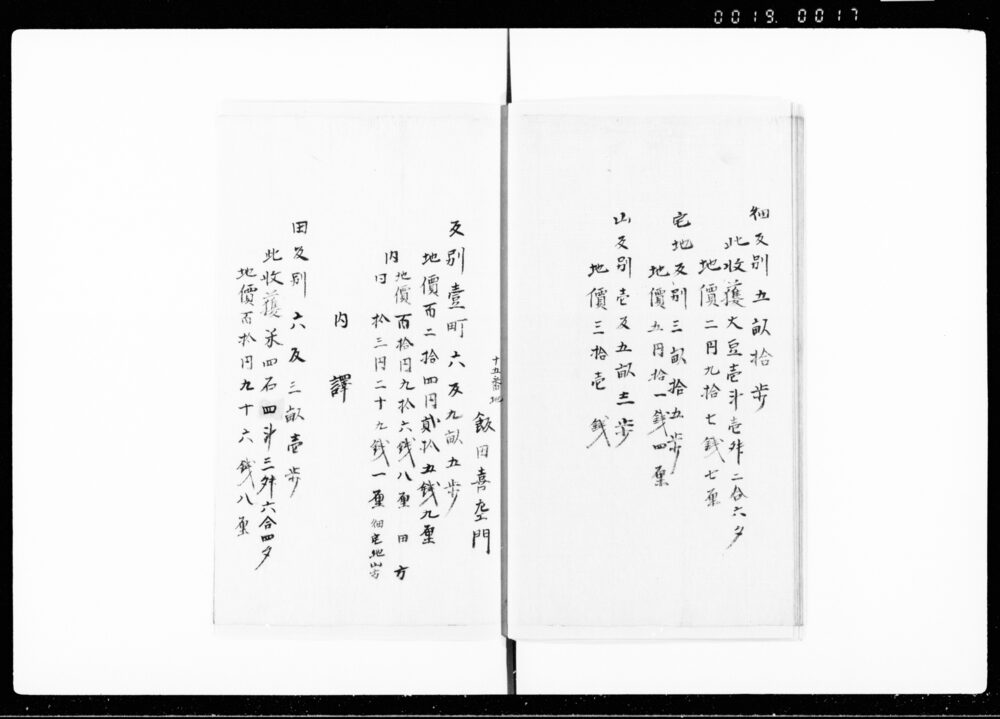 0019.0017
畑反別五畝拾歩
此收獲大豆壱斗壱舛二合六夕
地價二円九拾七銭七厘
宅地反別三畝拾五歩
地價五円拾一銭四厘
山反別壱反五畝十二歩
地價三拾壱銭
十五番地
飯田喜左門
反別壹町六反九畝五歩
地價百二拾四円貳拾五銭九厘
内 地價百拾円九拾六銭八厘 田方
日 拾三円二十九銭一厘 畑宅地山方
内譯
田反別六反三畝壱歩
此收獲米四石四斗三舛六合四夕
地價百拾円九十六銭八厘